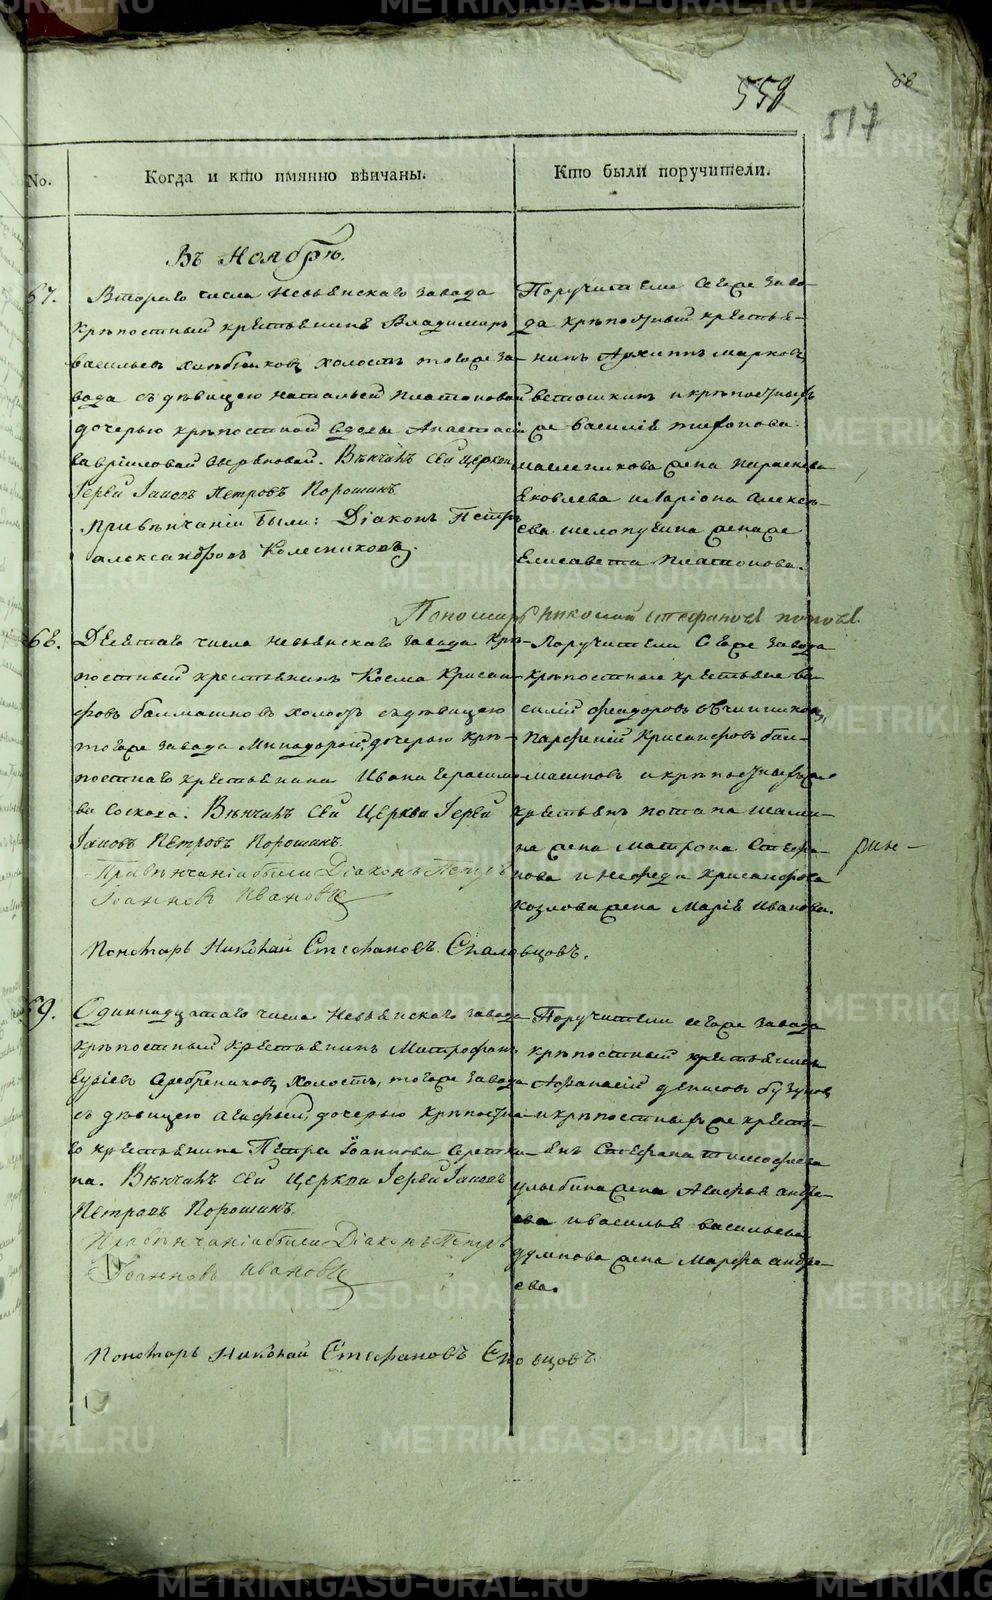 558
68
517
No.
Когда и кто имянно вѣнчаны.
Кто были поручители.
Въ Ноябрѣ.
67.
Втораго числа Невьянскаго завода
крѣпостный крестьянинъ Владимиръ
васильевъ холостъ тогоже за-
вода съ дѣвицею натальей платоновой
дочерью крѣпостной вдовы Анастасіи
гавріиловой. Вѣнчалъ Сей церкви
Іерей Іаковъ Петровъ Порошинъ.
При вѣнчаніи были: Діаконъ Петръ
александровъ Колесниковъ.
Поручители Сегоже заво-
да крѣпостный крестья-
нинъ Архиппъ марковъ
и крѣпостныхъ
же василія
масленикова жена параскева
Яковлева и Иларіона Алексѣ-
ева шелопугина жена же
Елисавета Платонова.
Пономарь николай стефановъ поповъ.
68.
Девятаго числа невьянскаго завода крѣ-
постный крестьянинъ Косма Крисан-
фовъ балмашновъ холостъ съ дѣвицею
тогоже завода Минодорой, дочерью крѣ-
постнаго крестьянина Ивана Герасимо-
ва Сокола. Вѣнчалъ Сей Церкви Іерей
Іаковъ Петровъ Порошинъ.
При вѣнчаніи были Діаконъ Петръ
Іоанновъ Ивановъ
Пономарь Николай Стефановъ
Поручители Сегоже завода
крѣпостные крестьяне ва-
силій феодоровъ овчинниковъ,
Парфеній Крисанфовъ бал-
машновъ и крѣпостныхъ же
крестьянъ потапа шама-
рин-
на жена матрона Стефа-
нова и Нефеда Крисанфова
козлова жена Марія Иванова.
69.
Одиннадцатаго числа Невьянскаго завода
крѣпостный крестьянинъ Митрофанъ
Серебрениковъ холостъ, тогоже завода
съ дѣвицею агафьей, дочерью крѣпостна-
го крестьянина Петра Іоаннова
на. Вѣнчалъ Сей Церкви Іерей Іаковъ
Петровъ Порошинъ.
При вѣнчаніи были Діаконъ Петръ
Іоанновъ Ивановъ
Пономарь Николай Стефановъ
Поручители сегоже завода
крѣпостный крестьянинъ
Афанасій денисовъ бузуновъ
и крѣпостныхъ же кресть-
янъ Стефана тимофеева
улыбина жена Агафья андре-
ева и василья васильева
думнова жена Марфа андре-
ева.
METRIKI.GASO-URAL.RU